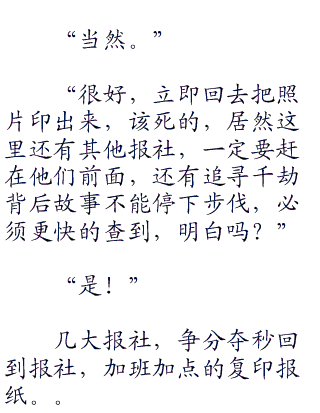 “当然。”
“很好，立即回去把照
片印出来，该死的，居然这
里还有其他报社，一定要赶
在他们前面，还有追寻千劫
背后故事不能停下步伐，必
须更快的查到，明白吗？”
“是！”
几大报社，争分夺秒回
到报社，加班加点的复印报
纸。。